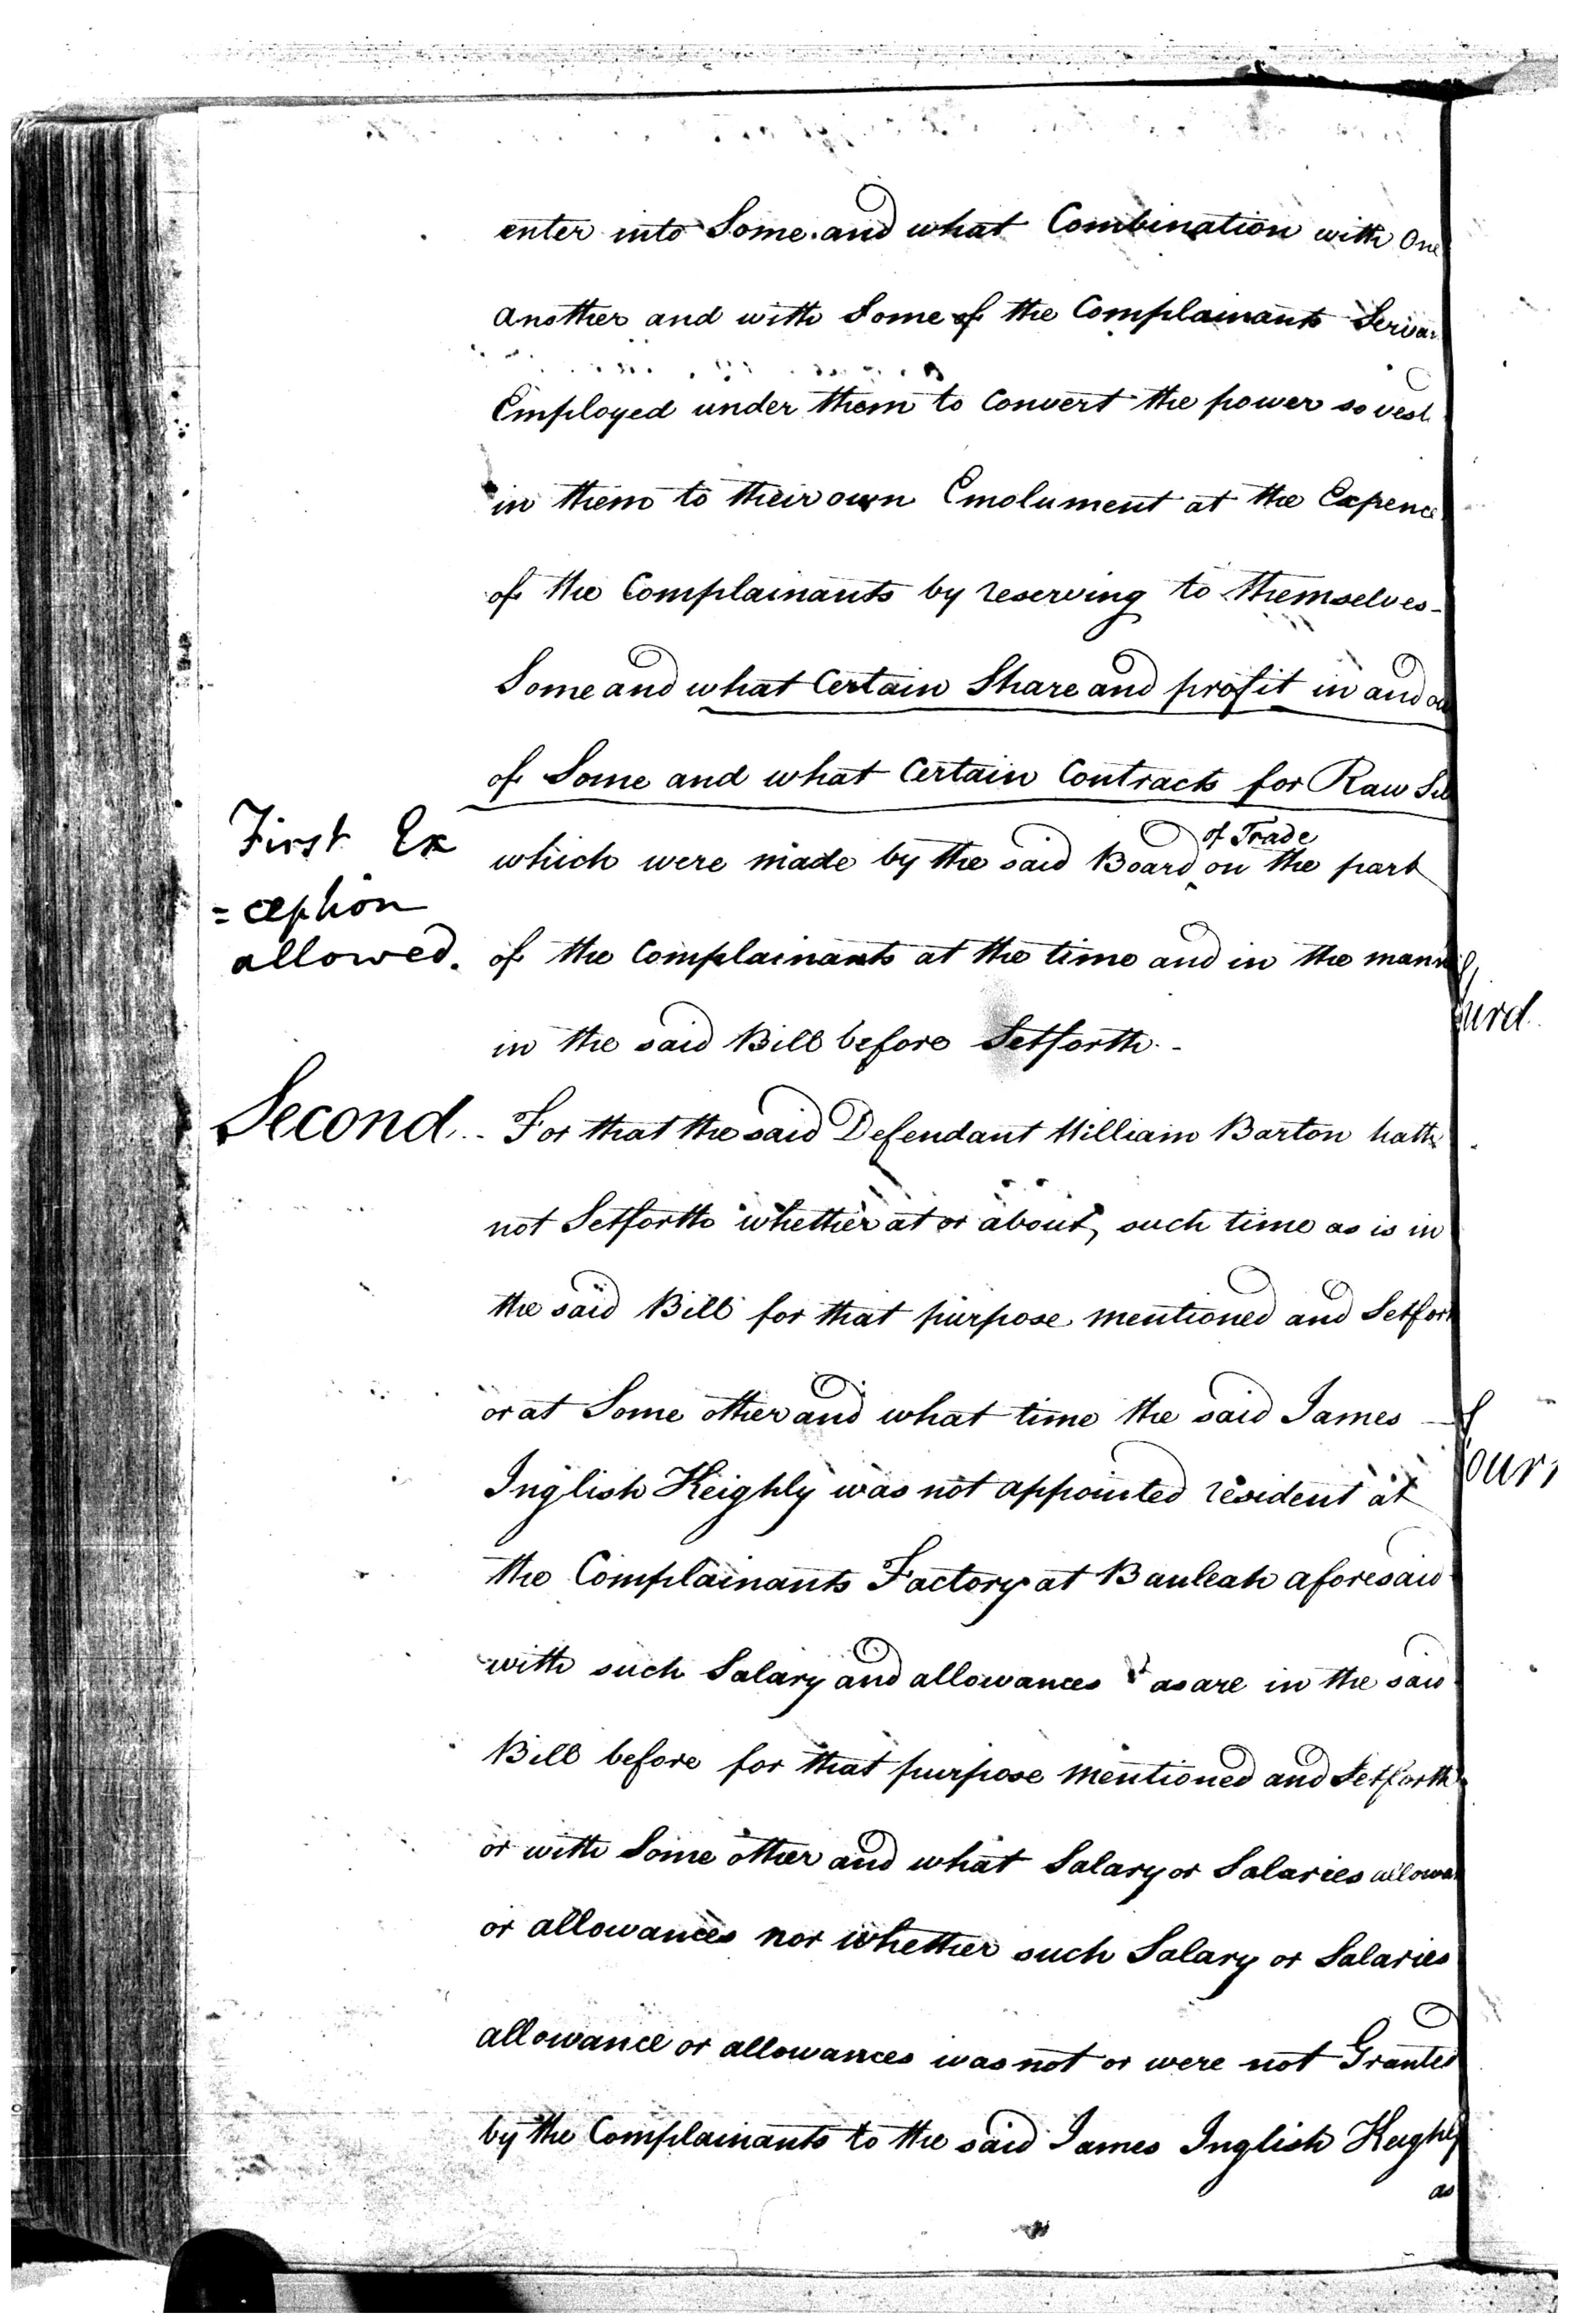 enter into Some and what Combination with One
another and with Some of the Complainants Servan
Employed under them to Convert the power so vest
in them to their own Emolument at the Expence
of the Complainants by reserving to themselves -
Some and what Certain Share and profit in and ou
of Some and what Certain Contracts for Raw Sil
of Trade
First Ex which were made by the said Board ‸ on the part
= ception
allowed. of the Complainants at the time and in the mann
hird
in the said Bill before Setforth. -
Second.. - For that the said Defendant William Barton hath
not Setforth whether at or about, such time as is in
the said Bill for that purpose mentioned and Setfort
or at Some other and what time the said James
our
Inglish Keighly was not appointed resident at
the Complainants Factory at Bauleah aforesaid
with such Salary and allowances as are in the said
Bill before for that purpose mentioned and Setforth
or with Some other and what Salary or Salaries allowan
or allowances nor whether such Salary or Salaries
allowance or allowances was not or were not Granted
by the Complainants to the said James Inglish Keighly
as